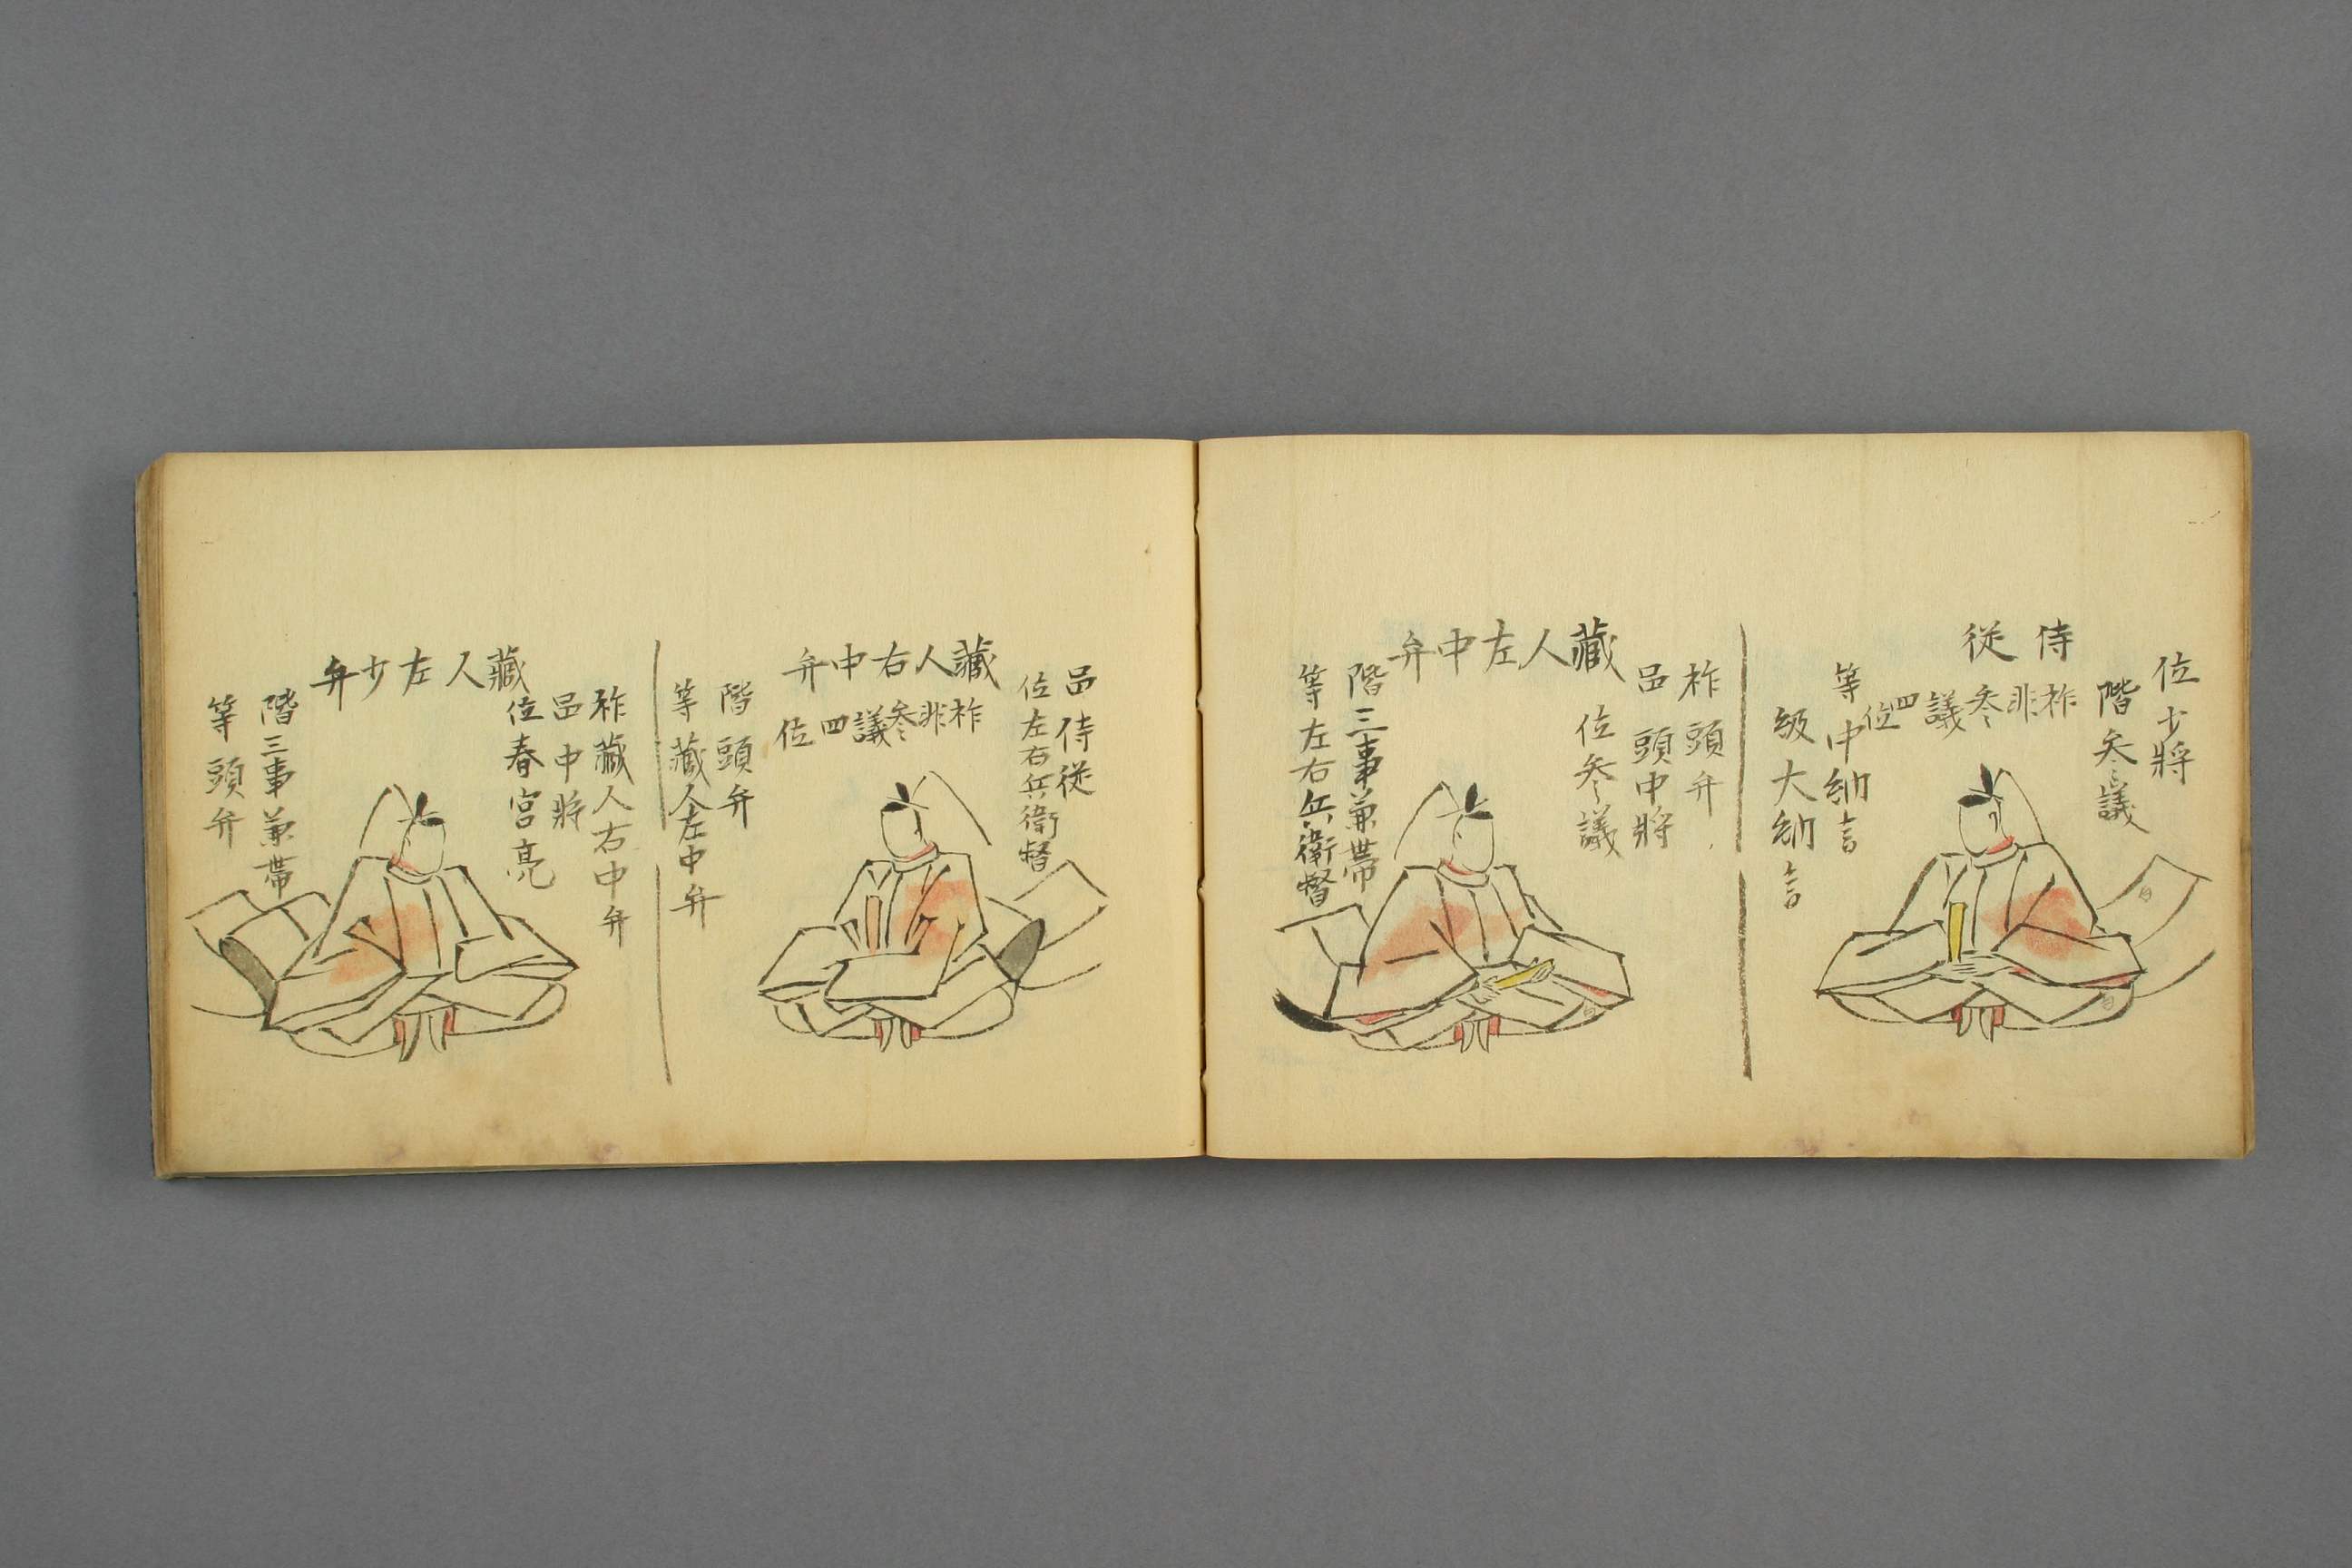 位少將
階参議
侍従
祚非参議四位
等中納言
級大納言
祚頭弁
品頭中將
位参議
藏人左中弁
階三事兼帯
等左右兵衛督
品侍従
位左右兵衛督
藏人右中弁
祚非参議四位
階頭弁
等藏人左中弁
祚藏人右中弁
品中將
位春宮亮
藏人左少弁
階三事兼帯
等頭弁